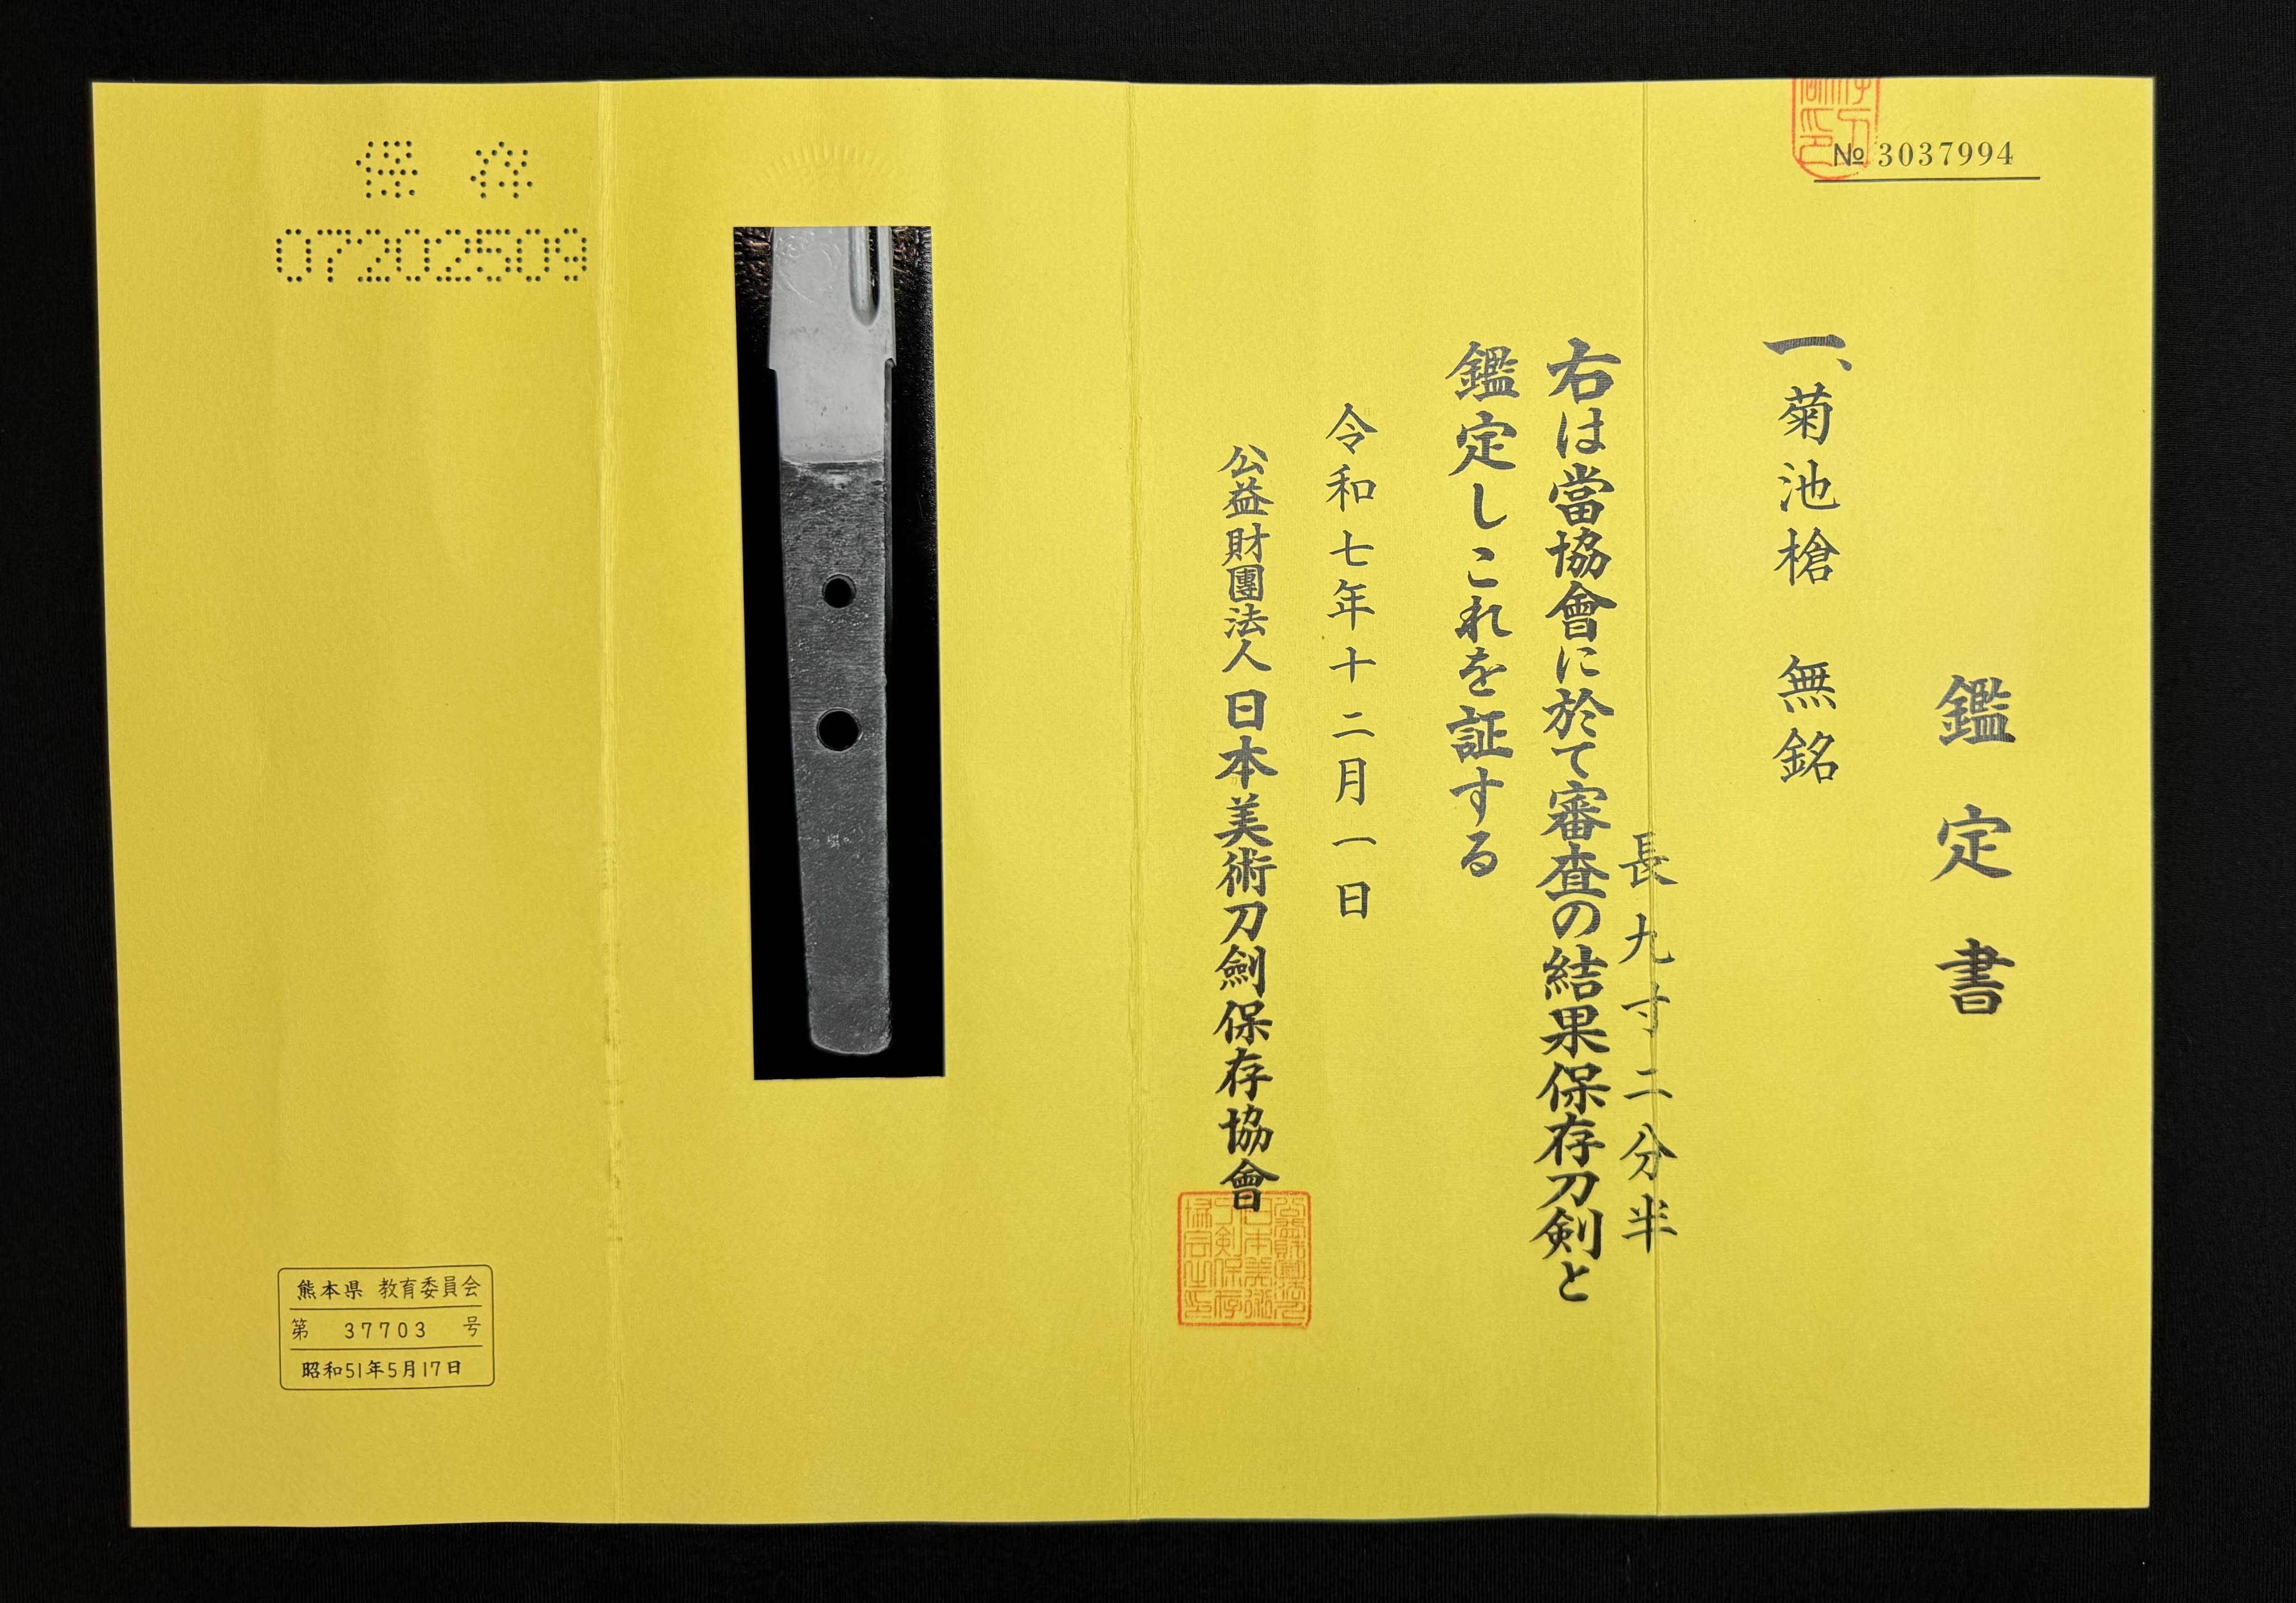 № 3037994
鑑定書
一、菊池槍 無銘
長九寸二分半
右は當協會に於て審査の結果保存刀剣と
鑑定しこれを証する
令和七年十二月一日
公益財團法人日本美術刀劍保存協會
保存
07202509
熊本県 教育委員会
第 37703 号
昭和51年5月17日